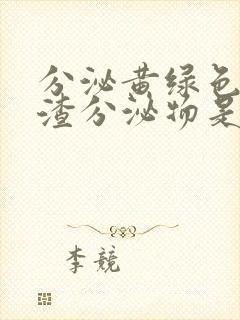 分泌黄绿色
渣分泌物是
李競